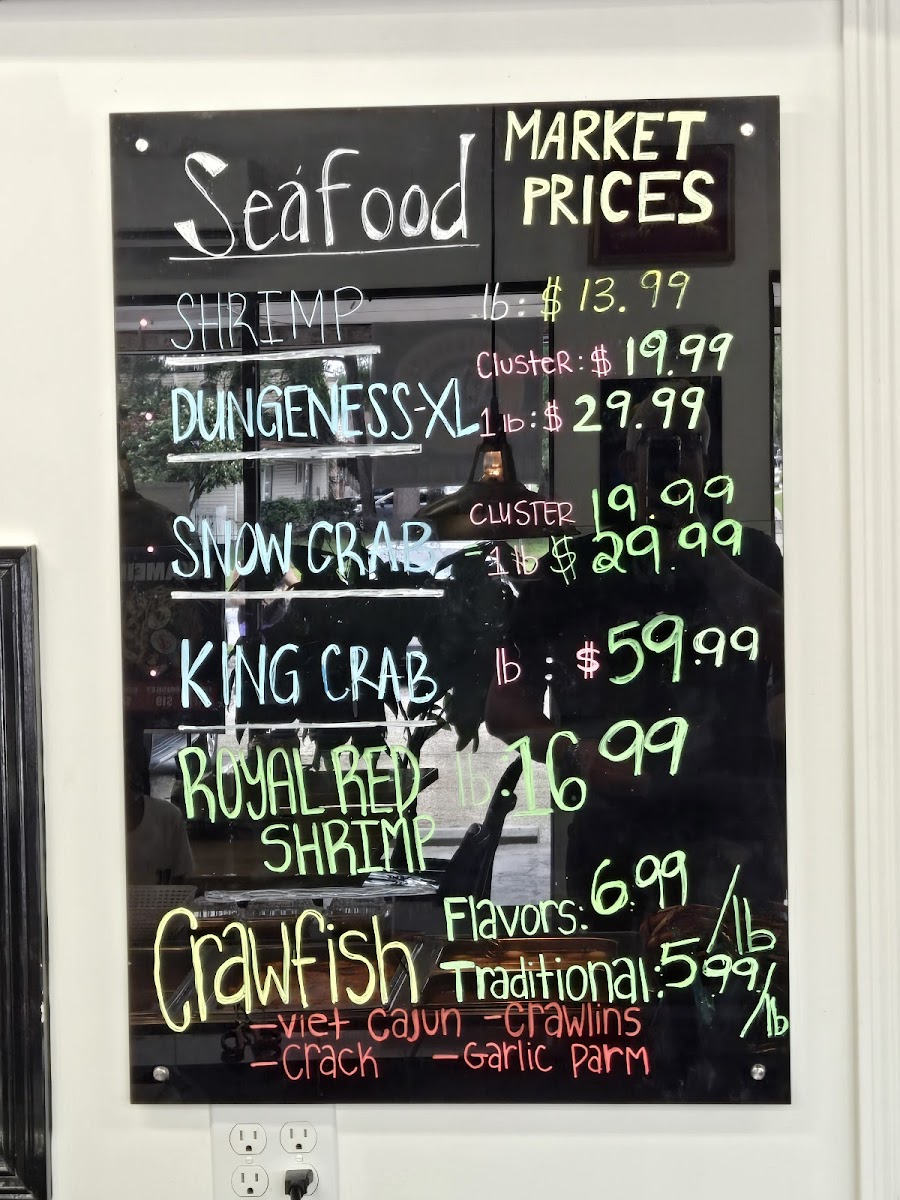 Seafood
MARKET
PRICES
SHRIMP lb: $ 13.99
Cluster: $ 19.99
DUNGENESS-XL 1 lb: $ 29.99
CLUSTER 19.99
SNOW CRAB - 1 lb $ 29.99
KING CRAB lb : $59.99
ROYAL RED lb:16 99
SHRIMP
Flavors: 6.99/lb
Crawfish Traditional: 5.99/lb
-Viet Cajun -Crawlins
-Crack -Garlic Parm